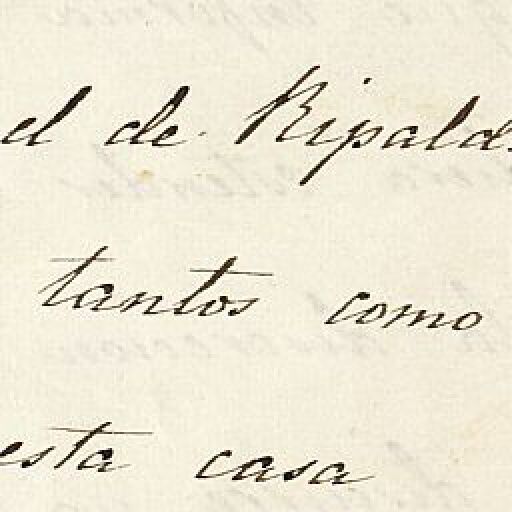 el de Ripald
tantos como
esta casa